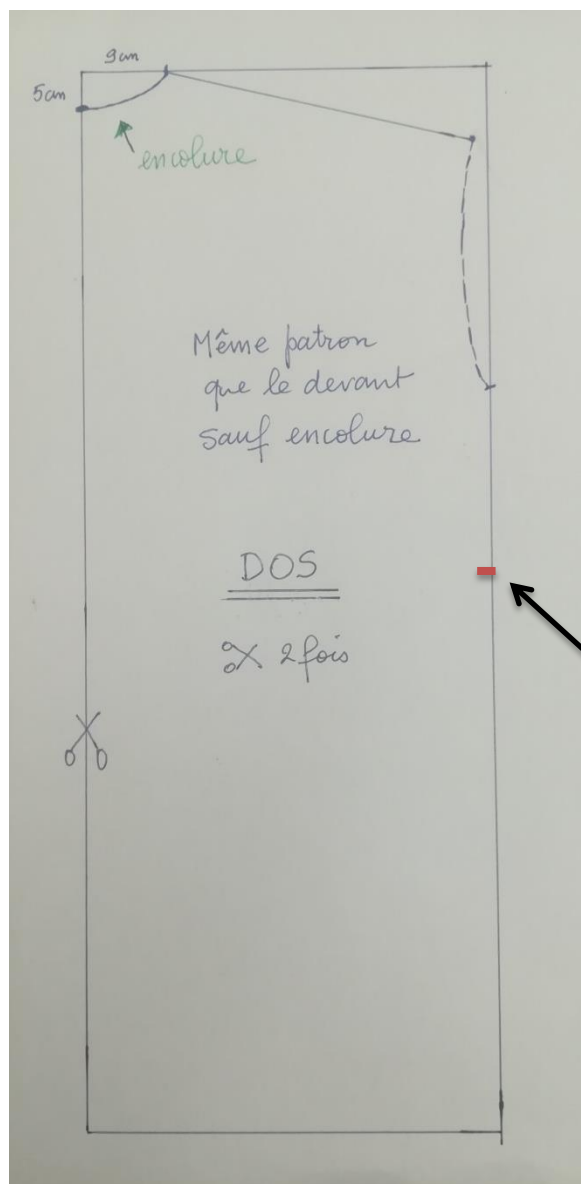 9cm
5cm
encolure
Même patron
que le devant
sauf encolure
DOS
2 fois